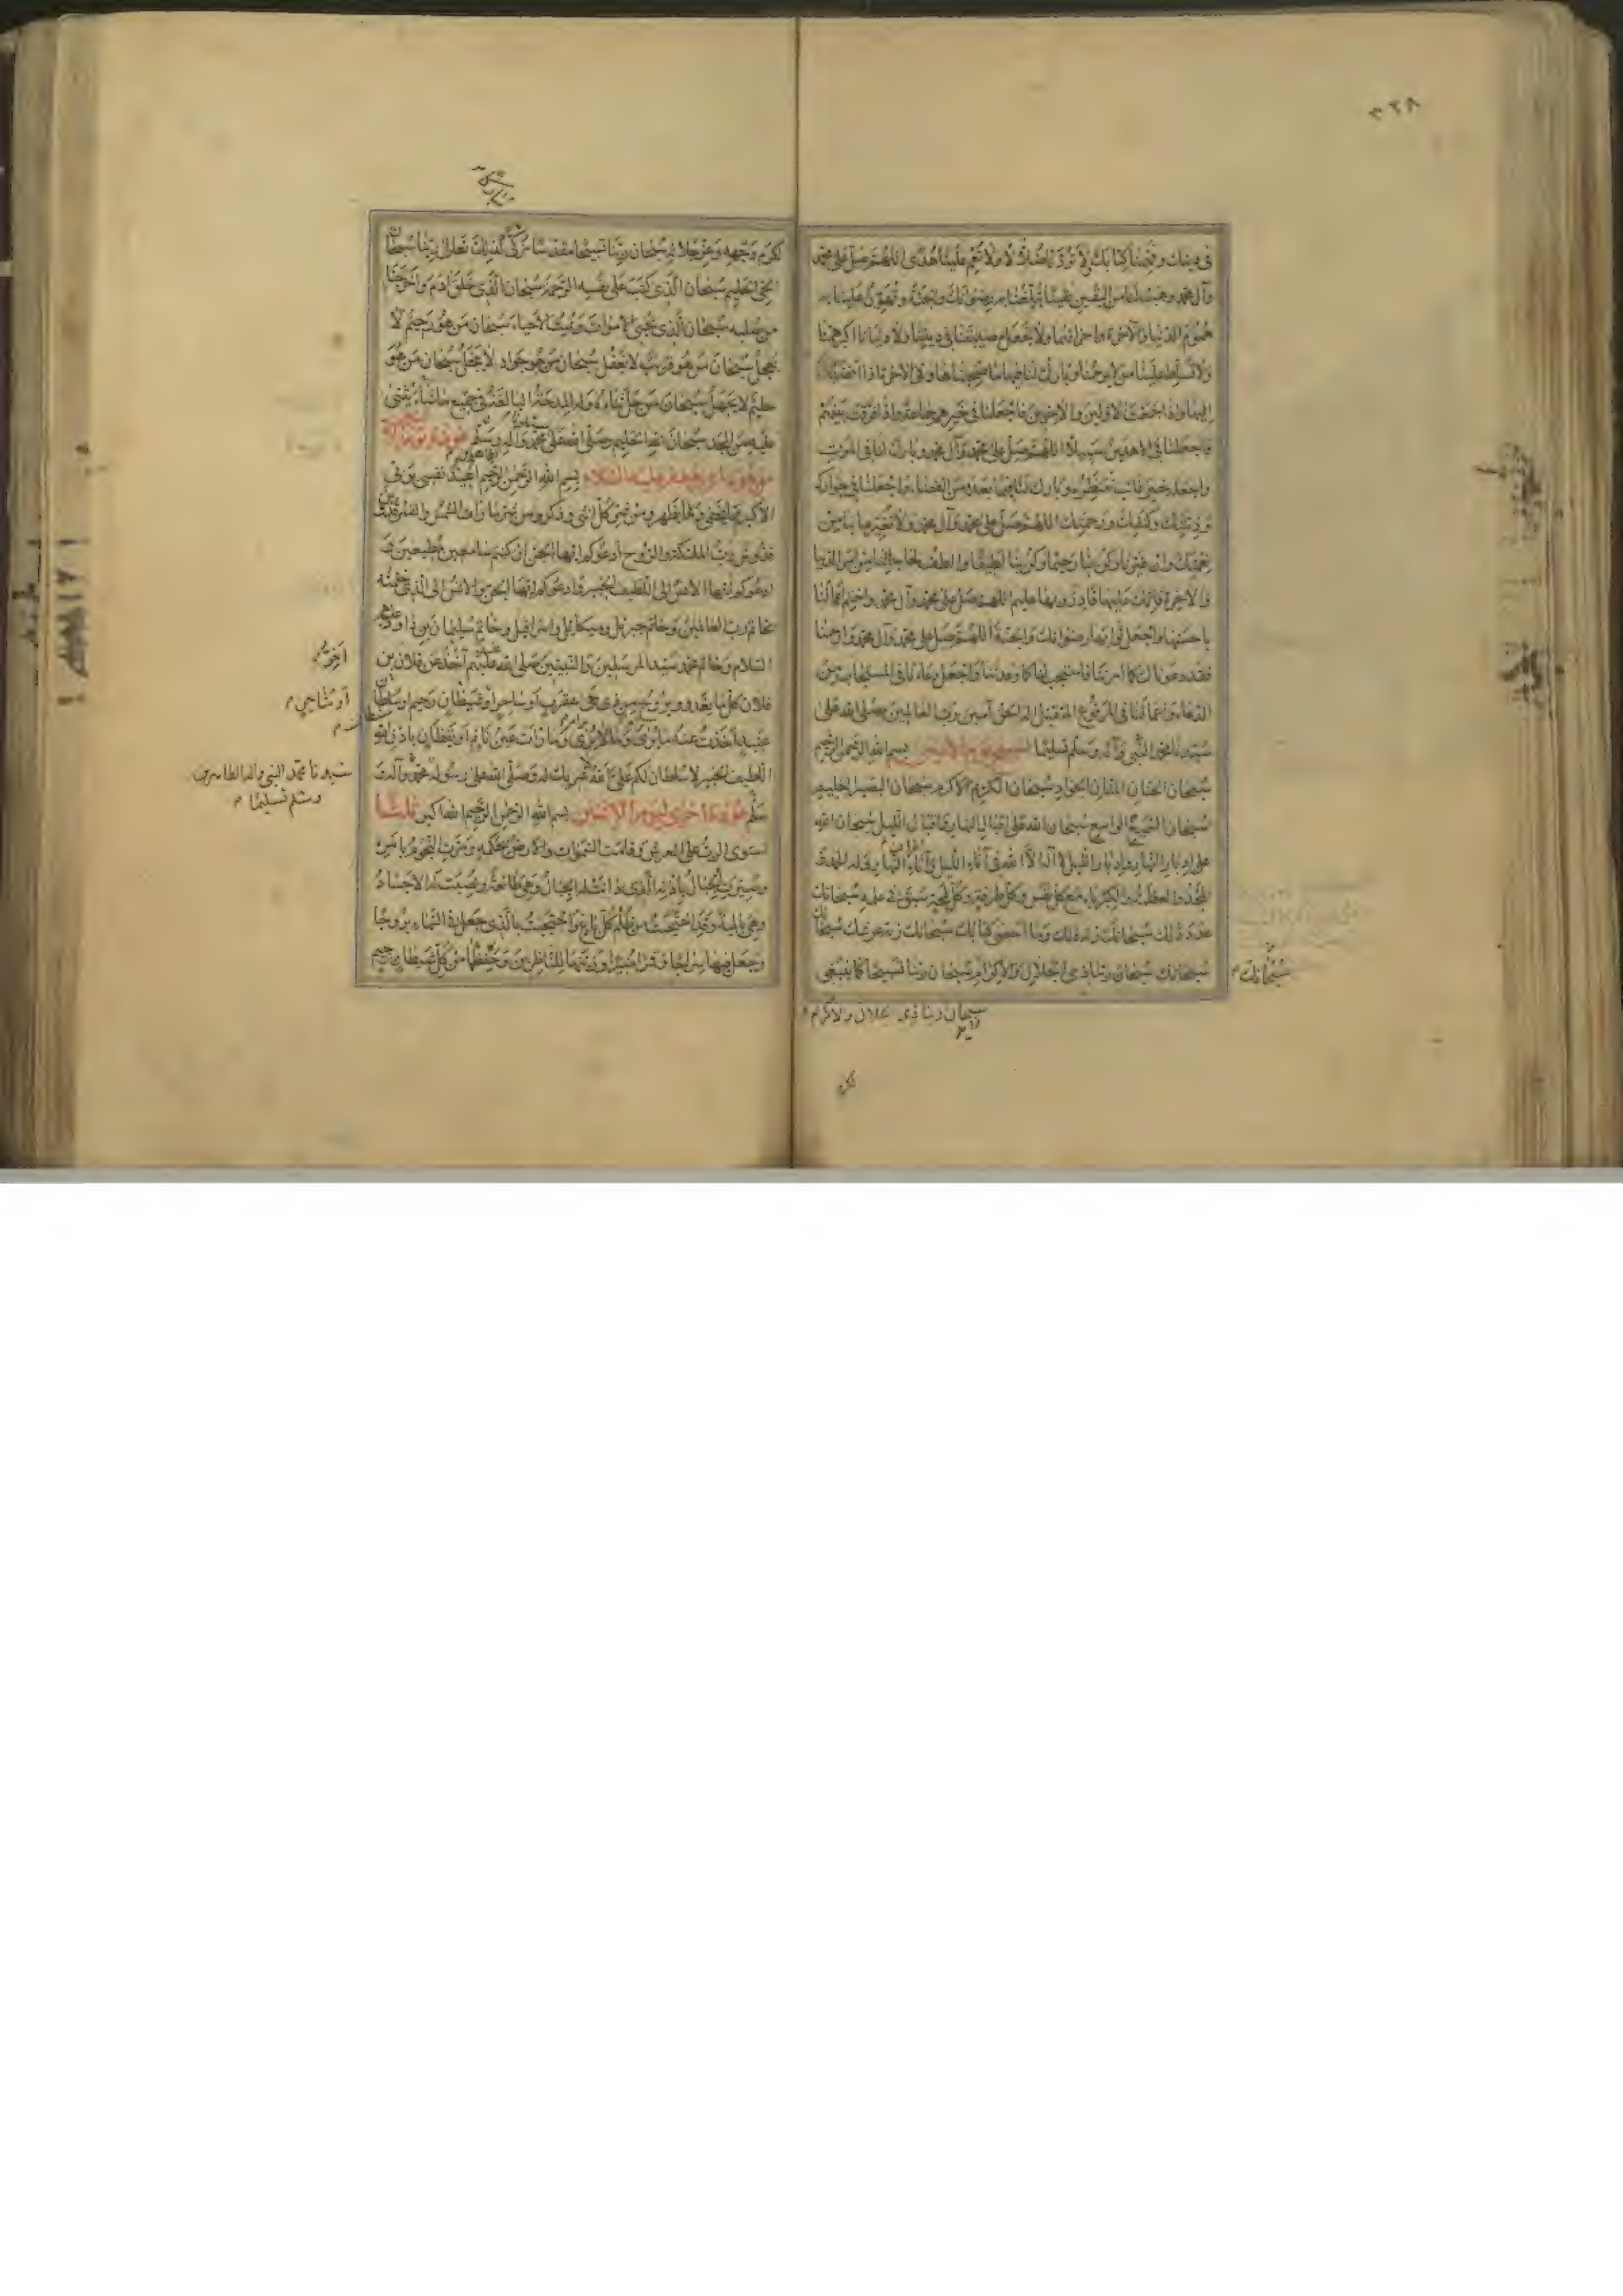 ٣٢٨
في دينك وفهمنا كتابك ولا تردنا ضلالا ولا تعم علينا هدى اللهم صل على محمد
وآل محمد وهب لنا من اليقين يقينا تبلغنا به رضوانك والجنة وتهون علينا به
هموم الدنيا والآخرة واحزانهما ولا تجعل مصيبتنا في ديننا ولا دنيانا اكبر همنا
ولا تسلط علينا من لا يرحمنا وبارك لنا فيها ما صحبناها وفي الآخرة اذا افضينا
اليها واذا جمعت الاولين والآخرين فاجعلنا في خيرهم جماعة واذا فرقت بينهم
فاجعلنا في الاهدين سبيلا اللهم صل على محمد وآل محمد وبارك لنا في الموت
واجعله خير غائب ننتظره وبارك لنا فيما بعده من القضاء واجعلنا في جوارك
وذمتك وكنفك ورحمتك اللهم صل على محمد وآل محمد ولا تغير ما بنا من
نعمتك وان غيرنا وكن بنا رحيما وكن بنا لطيفا والطف لحاجاتنا من امر الدنيا
والآخرة فانك عليها قادر وبها عليم اللهم صل على محمد وآل محمد واختم اعمالنا
باحسنها واجعل ثوابها رضوانك والجنة اللهم صل على محمد وآل محمد وارحمنا
فقد دعوناك كما امرتنا فاستجب لنا كما وعدتنا واجعل دعاءنا في المستجاب من
الدعاء واعمالنا في المرفوع المتقبل اله الحق آمين رب العالمين وصلى الله على
سيدنا محمد النبي وآله وسلم تسليما تسبيح يوم الاثنين بسم الله الرحمن الرحيم
سبحان الحنان المنان الجواد سبحان الكريم الاكرم سبحان البصير العليم
سبحان السميع الواسع سبحان الله على اقبال النهار واقبال الليل سبحان الله
على ادبار النهار وادبار الليل لا اله الا الله في آناء الليل وآناء النهار وله الحمد و
المجد والعظمة والكبرياء مع كل نفس وكل طرفة وكل لمحة سبق في علمه سبحانك
عدد ذلك سبحانك زنة ذلك وما احصى كتابك سبحانك زنة عرشك سبحانك
سبحانك سبحان ربنا ذي الجلال والاكرام سبحان ربنا تسبيحا كما ينبغي
سبحانك
سبحان ربنا ذي الجلال والاكرام
لكرم
لكرم وجهه وعز جلاله سبحان ربنا تسبيحا مقدسا مزكى كذلك تعالى ربنا سبحان
الحي الحليم سبحان الذي كتب على نفسه الرحمة سبحان الذي خلق آدم واخرجنا
من صلبه سبحان الذي يحيي الاموات ويميت الاحياء سبحان من هو رحيم لا
يعجل سبحان من هو قريب لا يغفل سبحان من هو جواد لا يبخل سبحان من هو
حليم لا يجهل سبحان من جل ثناؤه وله المدحة البالغة في جميع ما يثنى
عليه من المجد سبحان الله الحليم وصلى الله على محمد وآله وسلم عوذة يوم الاثنين
من عوذ ابي جعفر عليه السلام بسم الله الرحمن الرحيم اعيذ نفسي بربي
الاكبر مما يخفى ومما يظهر ومن شر كل انثى وذكر ومن شر ما رات الشمس والقمر قدوس
قدوس رب الملئكة والروح ادعوكم ايها الجن ان كنتم سامعين مطيعين و
ادعوكم ايها الانس الى اللطيف الخبير وادعوكم ايها الجن والانس الى الذي ختمته
بخاتم رب العالمين وخاتم جبرئيل وميكائيل واسرافيل وخاتم سليمان بن داود عليه
السلام وخاتم محمد سيد المرسلين والنبيين صلى الله عليه وعليهم أخذ عن فلان بن
فلان كل ما يغدو ويروح من ذي حمى عقرب او ساحر او شيطان رجيم او سلطان
عنيد اخذت عنه ما يرى وما لا يرى وما رات عين نائم او يقظان باذن الله
اللطيف الخبير لا سلطان لكم على الله لا شريك له وصلى الله على رسوله محمد وآله و
سلم عوذة اخرى ليوم الاثنين بسم الله الرحمن الرحيم الله اكبر ثلاثا
استوى الرب على العرش وقامت السموات والارض بحكمه ومدت النجوم بامره
وسيرت الجبال باذنه الذي دانت له الجبال وهي طائعة ونصبت له الاجساد
وهي بالية وقد احتجبت من ظلم كل باغ واحتجبت بالذي جعل في السماء بروجا
وجعل فيها سراجا وقمرا منيرا وزينها للناظرين وحفظها من كل شيطان رجيم
سيدنا محمد النبي وآله الطاهرين
وسلم تسليما